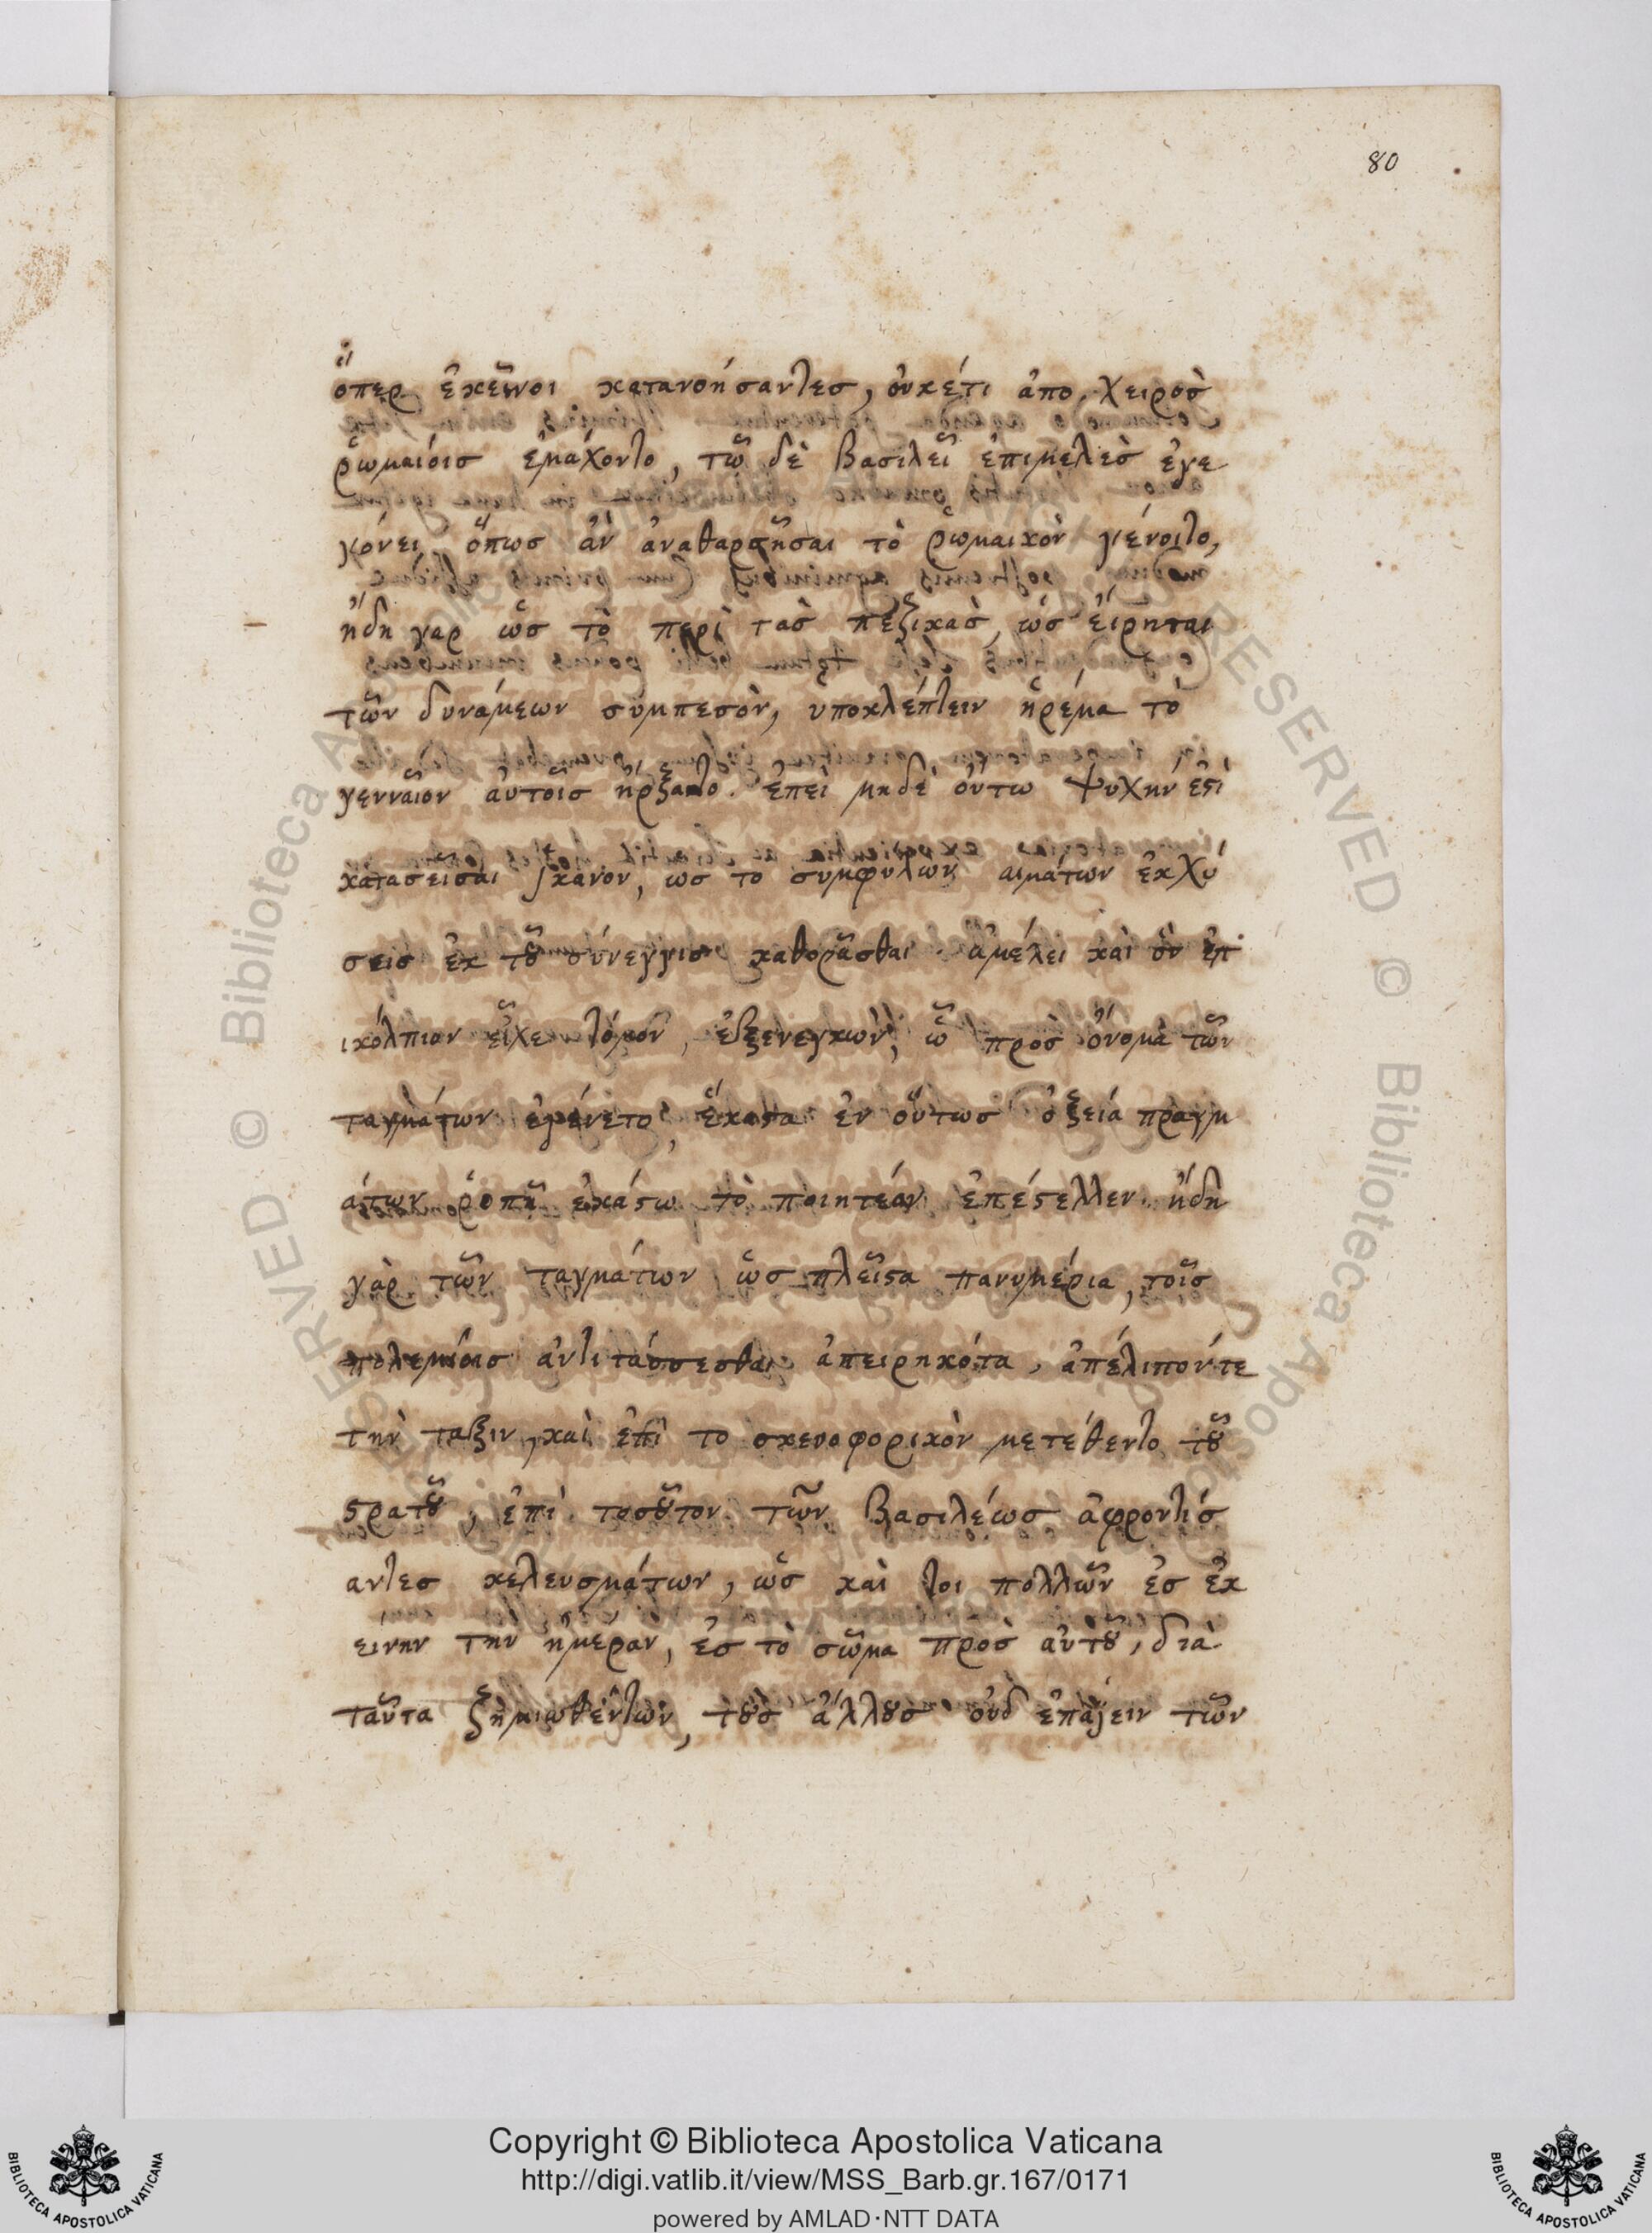 80
ὅπερ ἐκεῖνοι κατανοήσαντεσ, ὀυκέτι ἀπο χειροσ
ῥωμαίοισ ἐμάχοντο, τῶ δὲ βασιλεῖ ἐπιμελὲσ ἐγε
γόνει, ὅπωσ ἀν ἀναθαρσῆσαι τὸ ῥωμαικὸν γιένοιτο,
ἤδη γαρ ὡσ τὸ περὶ τασ πεζικασ, ὡσ ἐίρηται
τῶν δυνάμεων σύμπεσὸν, ὑποκλέπτειν ἠρέμα τὸ
γενναῖον ἀυτοῖσ ἤρξατο. ἐπεὶ μηδὲ ὀύτω ψυχήν ἐϛὶ
κατασεῖσαι ἱκανον, ωσ το συμφυλων αιμάτων ἐκχύ
σεισ ἐκ τȣ͂ σύνεγγισ καθορᾶσθαι. ἀμέλει καὶ ὃν ἐπ
ικόλπιον εἶχε τόμον, ἐξενεγκὼν, ὧ προσ ὄνομα τῶν
ταγμάτων ἐγένετο, ἕκαϛα ἐν οὕτωσ ὀξεία πραγμ
άτων ῥοπῆ ἑκάϛω τὸ ποιητέον ἐπέϛελλεν. ἤδη
γὰρ τῶν ταγμάτων ὡσ πλεῖϛα πανυμέρια, τοῖσ
πολεμίοισ ἀντιτάσσεσθαι ἀπειρηκότα, ἀπέλιπόντε
τὴν ταξιν, καὶ ἐπὶ το σκευοφορικὸν μετέθεντο τȣ͂
ϛρατȣ͂, ἐπὶ τοσȣ͂τον τῶν βασιλέωσ ἀφροντίσ
αντεσ κελευσμάτων, ὡσ καὶ τοι πολλῶν ἐσ ἐκ
είνην την ἡμέραν, ἐσ τὸ σῶμα προσ αὐτȣ͂, διὰ
ταῦτα ζημιωθέντων, τȣσ ἄλλȣσ ὀυδ ἐπαΐειν τῶν
Copyright © Biblioteca Apostolica Vaticana
http://digi.vatlib.it/view/MSS_Barb.gr.167/0171
powered by AMLAD·NTT DATA